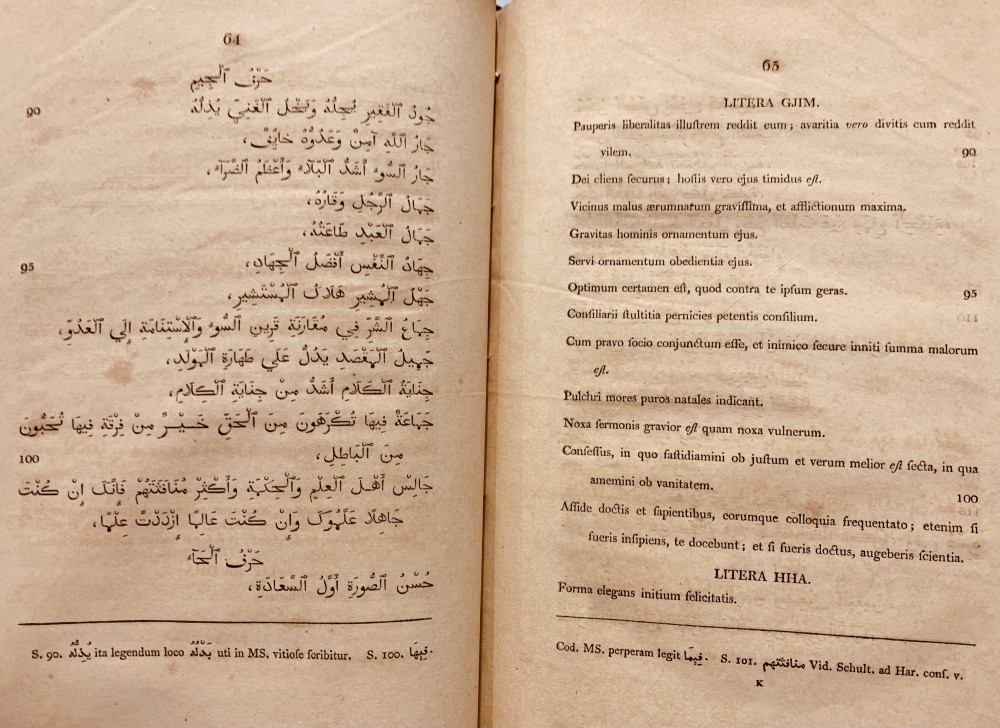 64
حَرْفُ ٱلْجِيمِ
90 جُودُ ٱلْفَقِيرِ يُجِلُّهُ وَبُخْلُ ٱلْغَنِيِّ يُذِلُّهُ
جَارُ ٱللَّهِ آمِنٌ وَعَدُوُّهُ خَايِفٌ،
جَارُ ٱلسُّوءِ أَشَدُّ ٱلْبَلَآءِ وَأَعْظَمُ ٱلضَّرَآءِ،
جَمَالُ ٱلرَّجُلِ وَقَارُهُ،
جَمَالُ ٱلْعَبْدِ طَاعَتُهُ،
95 جِهَادُ ٱلنَّفْسِ أَفْضَلُ ٱلْجِهَادِ،
جَهْلُ ٱلْمُشِيرِ هَلَاكُ ٱلْمُسْتَشِيرِ،
جِمَاعُ ٱلشَّرِّ فِي مُقَارَنَةِ قَرِينِ ٱلسُّوءِ وَٱلْإِسْتِنَامَةِ إِلَي ٱلْعَدُوِّ،
جَمِيلُ ٱلْمَقْصَدِ يَدُلُّ عَلَي طَهَارَةِ ٱلْمَوْلِدِ،
جِنَايَةُ ٱلْكَلَامِ أَشَدُّ مِنْ جِنَايَةِ ٱلْكِلَامِ،
جَمَاعَةٌ فِيهَا تُكْرَهُونَ مِنَ ٱلْحَقِّ خَيْرٌ مِنْ فِرْقَةٍ فِيهَا تُحَبُّونَ
100 مِنَ ٱلْبَاطِلِ،
جَالِسْ أَهْلَ ٱلْعِلْمِ وَٱلْحِكْمَةِ وَأَكْثِرْ مُنَافَثَتَهُمْ فَإِنَّكَ إِنْ كُنْتَ
جَاهِلًا عَلَّمُوكَ وَإِنْ كُنْتَ عَالِمًا إِزْدَدْتَ عِلْمًا،
حَرْفُ ٱلْحَآءِ
حُسْنُ ٱلصُّورَةِ أَوَّلُ ٱلسَّعَادَةِ،
S. 90. يُذِلُّهُ ita legendum loco بَذْلُهُ uti in MS. vitiose scribitur. S. 100. فِيهَا.
65
LITERA GJIM.
Pauperis liberalitas illuſtrem reddit eum; avaritia vero divitis eum reddit
vilem. 90
Dei cliens ſecurus; hoſtis vero ejus timidus eſt.
Vicinus malus ærumnarum graviſſima, et afflictionum maxima.
Gravitas hominis ornamentum ejus.
Servi ornamentum obedientia ejus.
Optimum certamen eſt, quod contra te ipſum geras. 95
Conſiliarii ſtultitia pernicies petentis conſilium.
Cum pravo ſocio conjunctum eſſe, et inimico ſecure inniti ſumma malorum
eſt.
Pulchri mores puros natales indicant.
Noxa ſermonis gravior eſt quam noxa vulnerum.
Conſeſſus, in quo faſtidiamini ob juſtum et verum melior eſt ſecta, in qua
amemini ob vanitatem. 100
Aſſide doctis et ſapientibus, eorumque colloquia frequentato; etenim ſi
fueris inſipiens, te docebunt; et ſi fueris doctus, augeberis ſcientia.
LITERA HHA.
Forma elegans initium felicitatis.
Cod. MS. perperam legit فِيمَا. S. 101. منافثتهم Vid. Schult. ad Har. conſ. v.
K